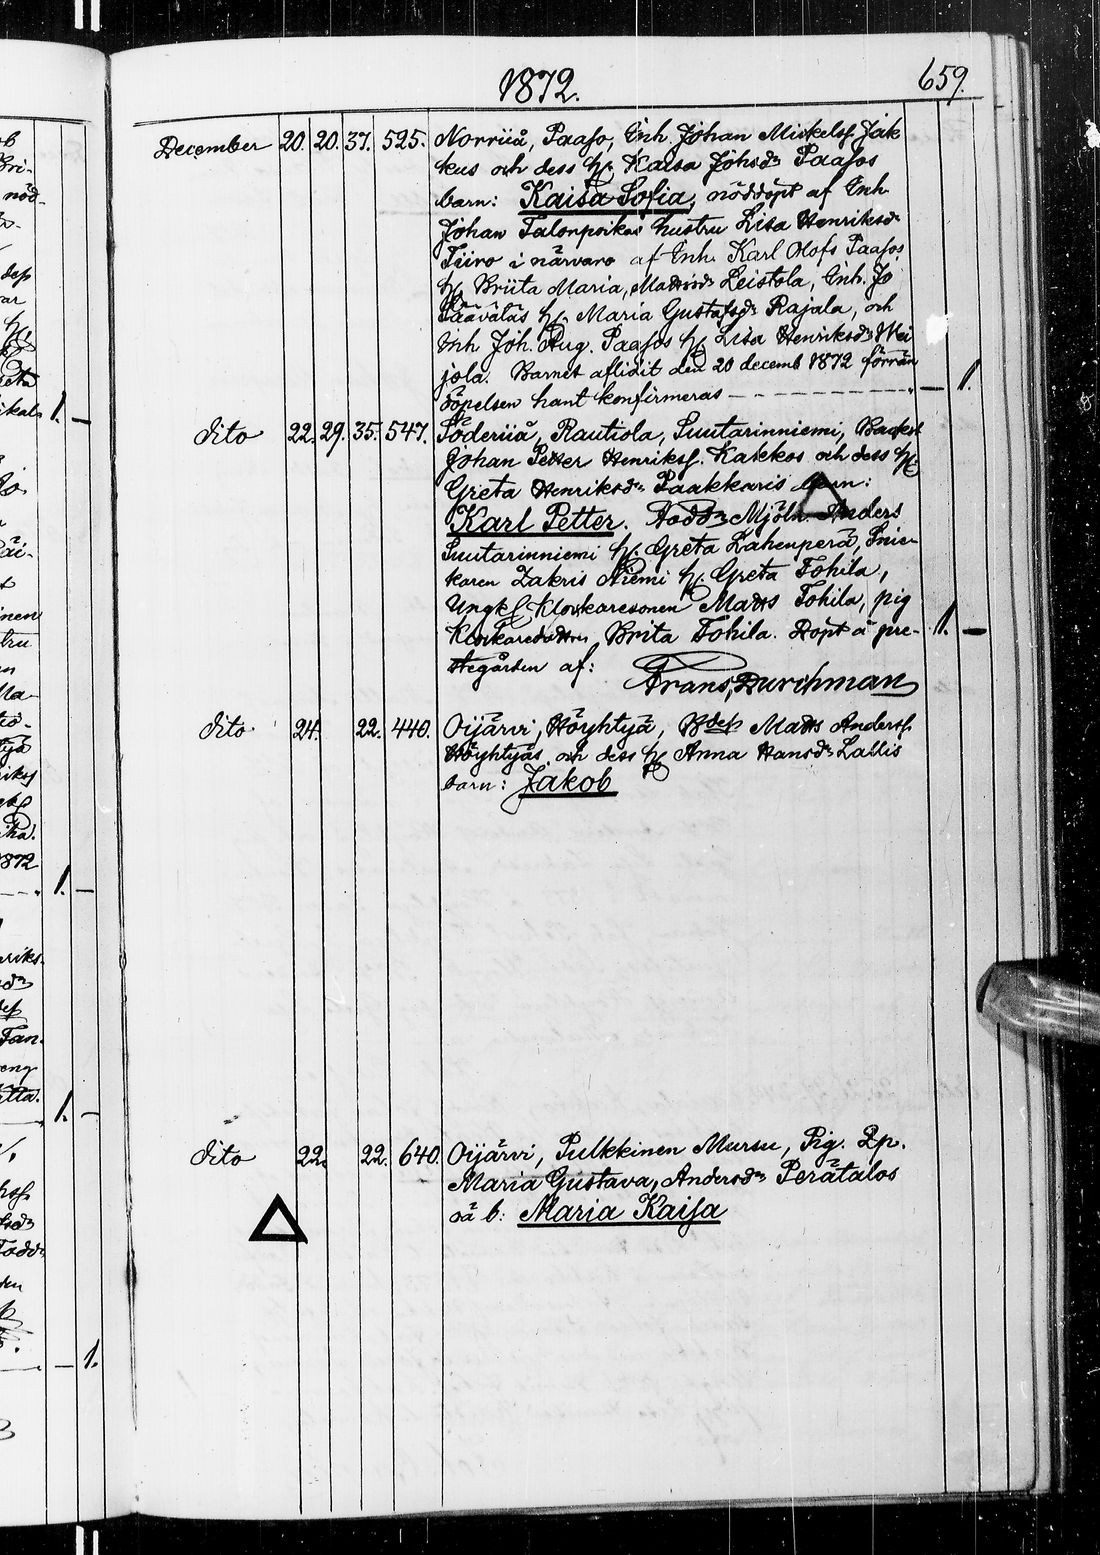 1872.
659.
December 20. 20. 37. 525. Norriiå, Paaso, Inh. Johan Mickelsf. Jak
kus och dess h. Kaisa Johsdr Paasos
barn: Kaisa Sofia, nöddöpt af Inh.
Johan Talonpoikas hustru Lisa Henriksdr
Tiiro i närvaro af Inh. Karl Olofs Paasos
h. Briita Maria, Leistola, Inh. Jo
Pääväläs h. Maria Gustafsdr Rajala, och
Inh Joh. Aug. Paasos h. Lisa Henriksdr Mei
jola. Barnet aflidit den 20 decemb 1872 förrän
döpelsen hant konfirmeras — 1.
dito 22. 29. 35. 547. Söderiiå, Rautiola, Suutarinniemi, Backst
Johan Petter Henriksf. Kakkos och dess h.
Greta Henriksdr Paakkaris barn:
Karl Petter. Fodd: Mjöln. Anders
Suutarinniemi h. Greta Lahenperä, Snic-
karen Zakris Niemi h. Greta Tohila,
Ungk Klockaresonen Matts Tohila, pig
Klockaredottren Brita Tohila. Döpt å pre- 1. —
stegården af: Frans Durchman
dito 24. 22. 440. Oijärvi, Höyhtyä, Matts Andersf.
Höyhtyäs och dess h. Anna Hansdr Lallis
barn: Jakob
dito 22. 22. 640. Oijärvi, Pulkkinen Mursu, Pig. Qp.
Maria Gustava, Andersdr Perätalos
oä b: Maria Kaisa
1. —
1. —
1. —
— 1.